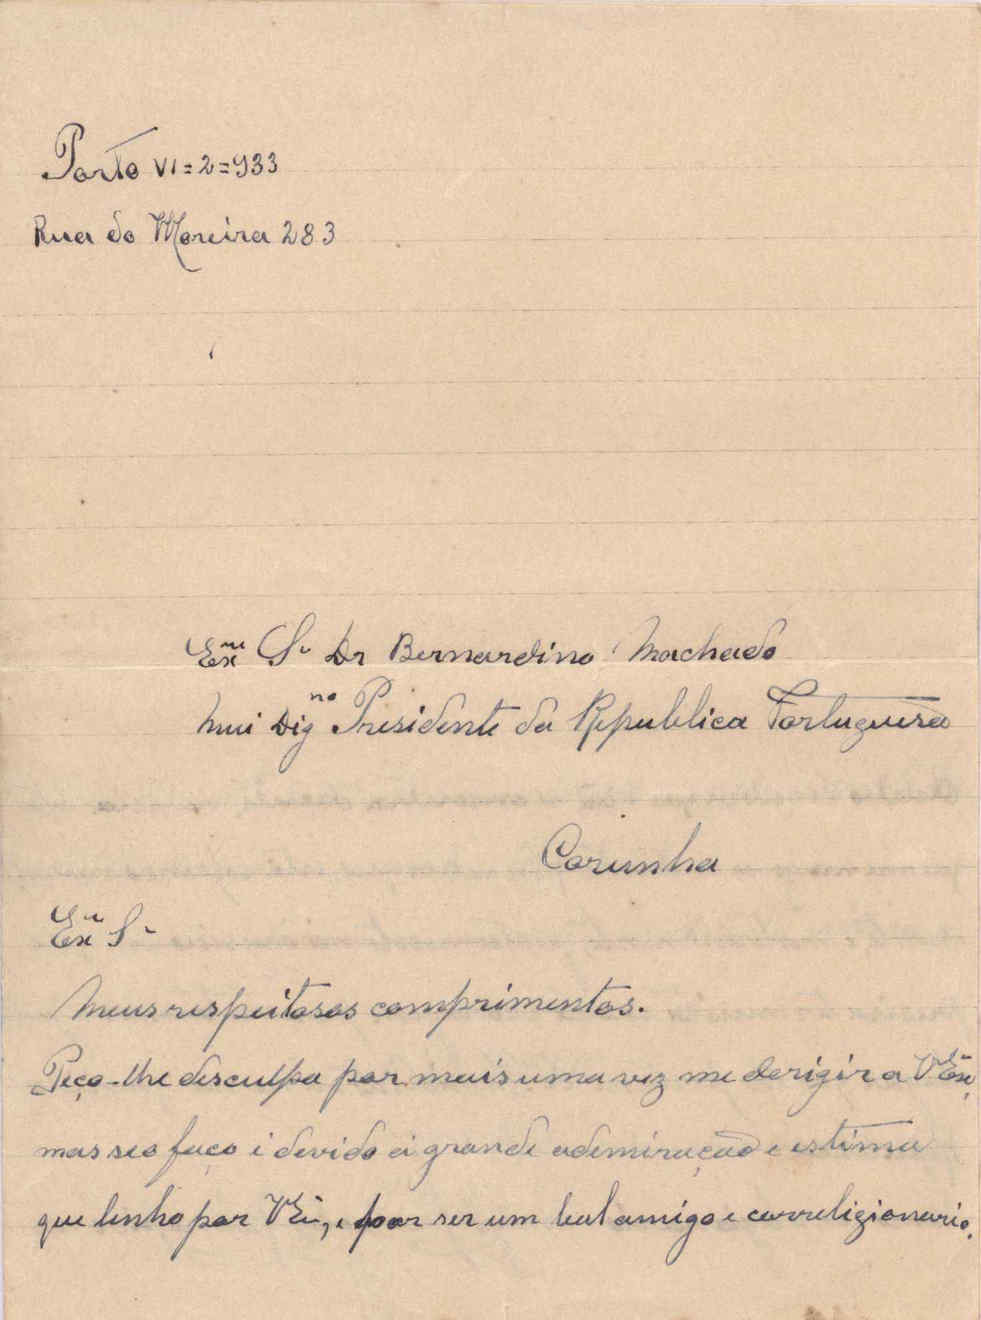 Porto VI=2=933
Rua do Moreira 283
Exmo Sr Dr Bernardino Machado
Mui Digno Presidente da Republica Portuguesa
Corunha
Exmo Sr
Meus respeitosos comprimentos.
Peço-lhe desculpa por mais uma vez me derigir a VExa,
mas se o faço é devido á grande ademiração e estima
que tenho por VExa, e por ser um leal amigo e correligionario.